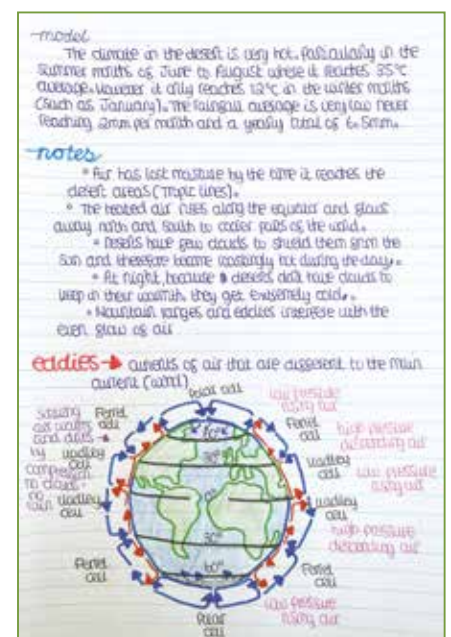 model
The climate in the desert is very hot. Particularly in the
summer months of June to August where it reaches 35°C
average. However it only reaches 12°C in the winter months
(such as January). The rainfall average is very low never
reaching 2mm per month and a yearly total of 6.5mm.
notes
• Air has lost moisture by the time it reaches the
desert areas (Tropic lines).
• The heated air rises along the equator and flows
away north and south to cooler parts of the world.
• Deserts have few clouds to shield them from the
sun and therefore become roastingly hot during the day.
• At night, because deserts don't have clouds to
keep in their warmth, they get extremely cold.
• Mountain ranges and eddies interfere with the
even flow of air
eddies → currents of air that are different to the main
current (wind)
Polar cell
low pressure
rising air
Sinking
air warms
and dries
by
compression
no clouds
no rain
Ferrel
cell
Hadley
cell
Hadley
cell
Ferrel
cell
Polar
cell
60°
30°
0°
30°
60°
Ferrel
cell
high pressure
descending air
Hadley
cell
low pressure
rising air
Hadley
cell
high pressure
descending air
Ferrel
cell
low pressure
rising air